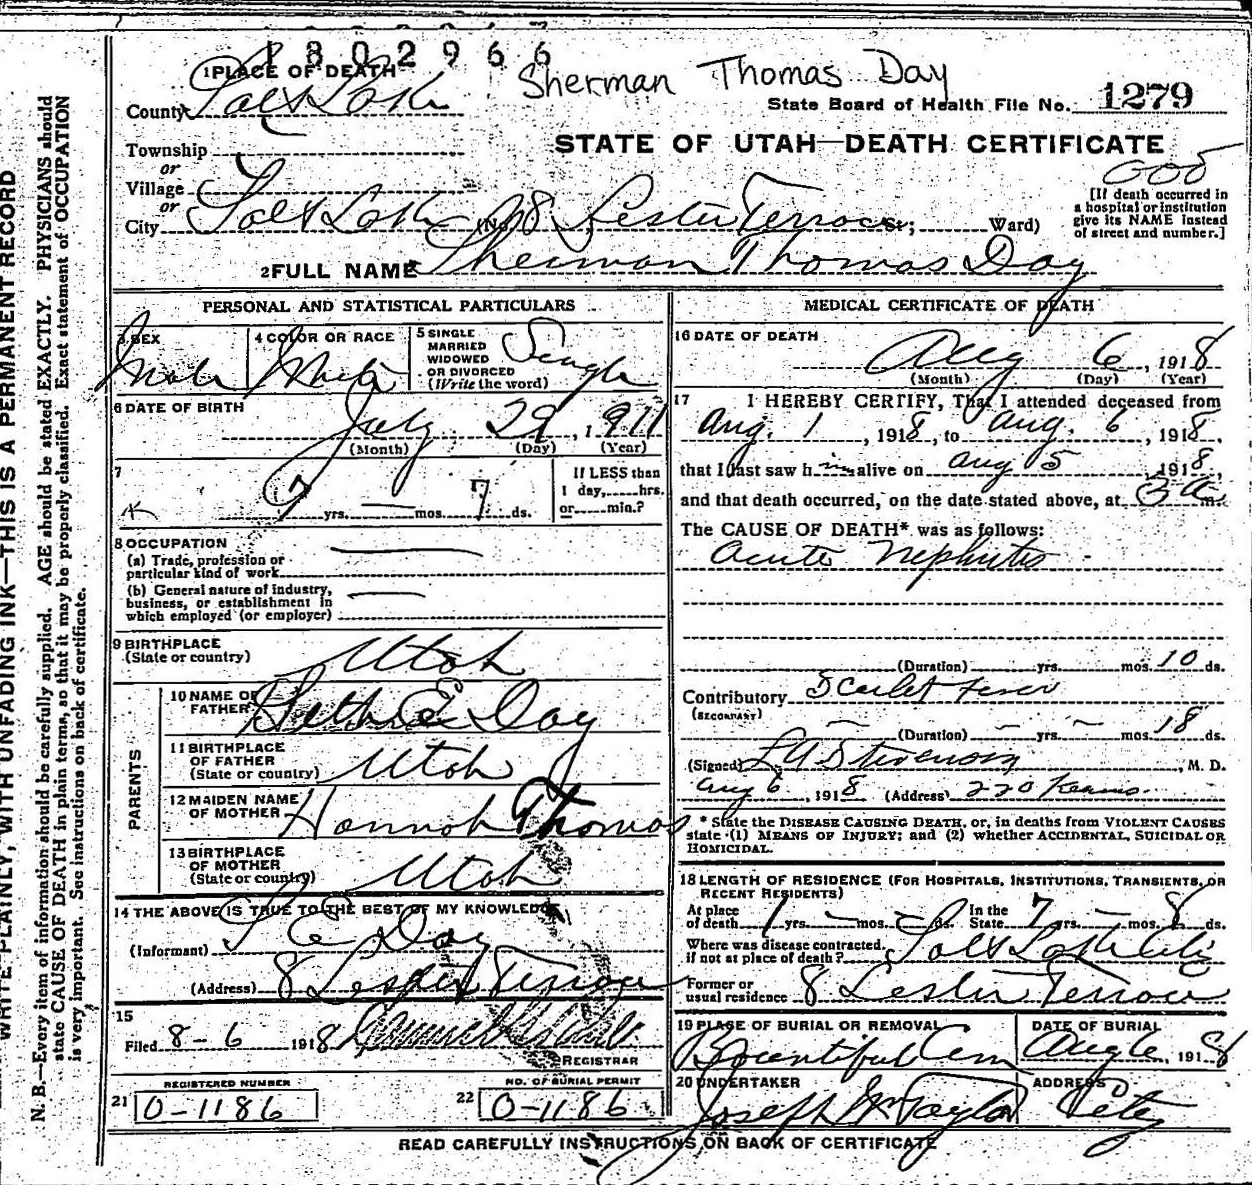 1302966
Sherman Thomas Day
1 PLACE OF DEATH
County Salt Lake
State Board of Health File No. 1279
STATE OF UTAH—DEATH CERTIFICATE
Township
or
Village
or
City Salt Lake (No. 8 Lester Terrace St; Ward)
005
[If death occurred in
a hospital or institution
give its NAME instead
of street and number.]
2 FULL NAME Sherman Thomas Day
PERSONAL AND STATISTICAL PARTICULARS
3 SEX
Male
4 COLOR OR RACE
White
5 SINGLE
MARRIED
WIDOWED
OR DIVORCED
(Write the word)
Single
6 DATE OF BIRTH
July 29, 1911
(Month) (Day) (Year)
7
7 yrs. — mos. 7 ds.
If LESS than
1 day, hrs.
or min.?
8 OCCUPATION
(a) Trade, profession or
particular kind of work
(b) General nature of industry,
business, or establishment in
which employed (or employer)
9 BIRTHPLACE
(State or country) Utah
PARENTS
10 NAME OF
FATHER Seth E Day
11 BIRTHPLACE
OF FATHER
(State or country) Utah
12 MAIDEN NAME
OF MOTHER Hannah Thomas
13 BIRTHPLACE
OF MOTHER
(State or country) Utah
14 THE ABOVE IS TRUE TO THE BEST OF MY KNOWLEDGE
(Informant) S E Day
(Address) 8 Lester Terrace
15
Filed 8-6 1918
REGISTRAR
REGISTERED NUMBER
21 0-1186
NO. OF BURIAL PERMIT
22 0-1186
MEDICAL CERTIFICATE OF DEATH
16 DATE OF DEATH
Aug 6, 1918
(Month) (Day) (Year)
17 I HEREBY CERTIFY, That I attended deceased from
Aug. 1, 1918, to Aug. 6, 1918,
that I last saw him alive on Aug 5, 1918,
and that death occurred, on the date stated above, at 3 a m.
The CAUSE OF DEATH* was as follows:
Acute Nephritis
(Duration) yrs. mos. 10 ds.
Contributory Scarlet fever
(SECONDARY)
(Duration) — yrs. — mos. 18 ds.
(Signed) L A Stevenson, M. D.
Aug 6, 1918 (Address) 220 Kearns.
* State the DISEASE CAUSING DEATH, or, in deaths from VIOLENT CAUSES
state (1) MEANS OF INJURY; and (2) whether ACCIDENTAL, SUICIDAL OR
HOMICIDAL.
18 LENGTH OF RESIDENCE (FOR HOSPITALS, INSTITUTIONS, TRANSIENTS, OR
RECENT RESIDENTS)
At place
of death 1 yrs. — mos. — ds. In the
State 7 yrs. — mos. 8 ds.
Where was disease contracted,
if not at place of death? Salt Lake City
Former or
usual residence 8 Lester Terrace
19 PLACE OF BURIAL OR REMOVAL
Bountiful Cem
DATE OF BURIAL
Aug 6, 1918
20 UNDERTAKER
Joseph Wm Taylor
ADDRESS
City
READ CAREFULLY INSTRUCTIONS ON BACK OF CERTIFICATE
WRITE PLAINLY, WITH UNFADING INK—THIS IS A PERMANENT RECORD
N. B.—Every item of information should be carefully supplied. AGE should be stated EXACTLY. PHYSICIANS should
state CAUSE OF DEATH in plain terms, so that it may be properly classified. Exact statement of OCCUPATION
is very important. See instructions on back of certificate.